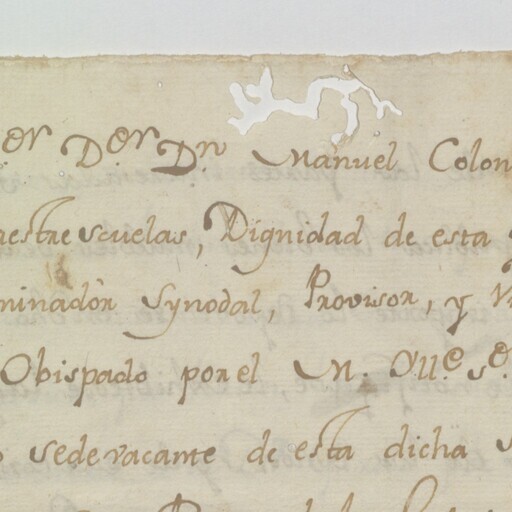 Dor Dn Manuel Colon
estre scuelas, Dignidad de esta
minador Synodal, Provisor, y
Obispado por el M. Ille Se
sedevacante de esta dicha